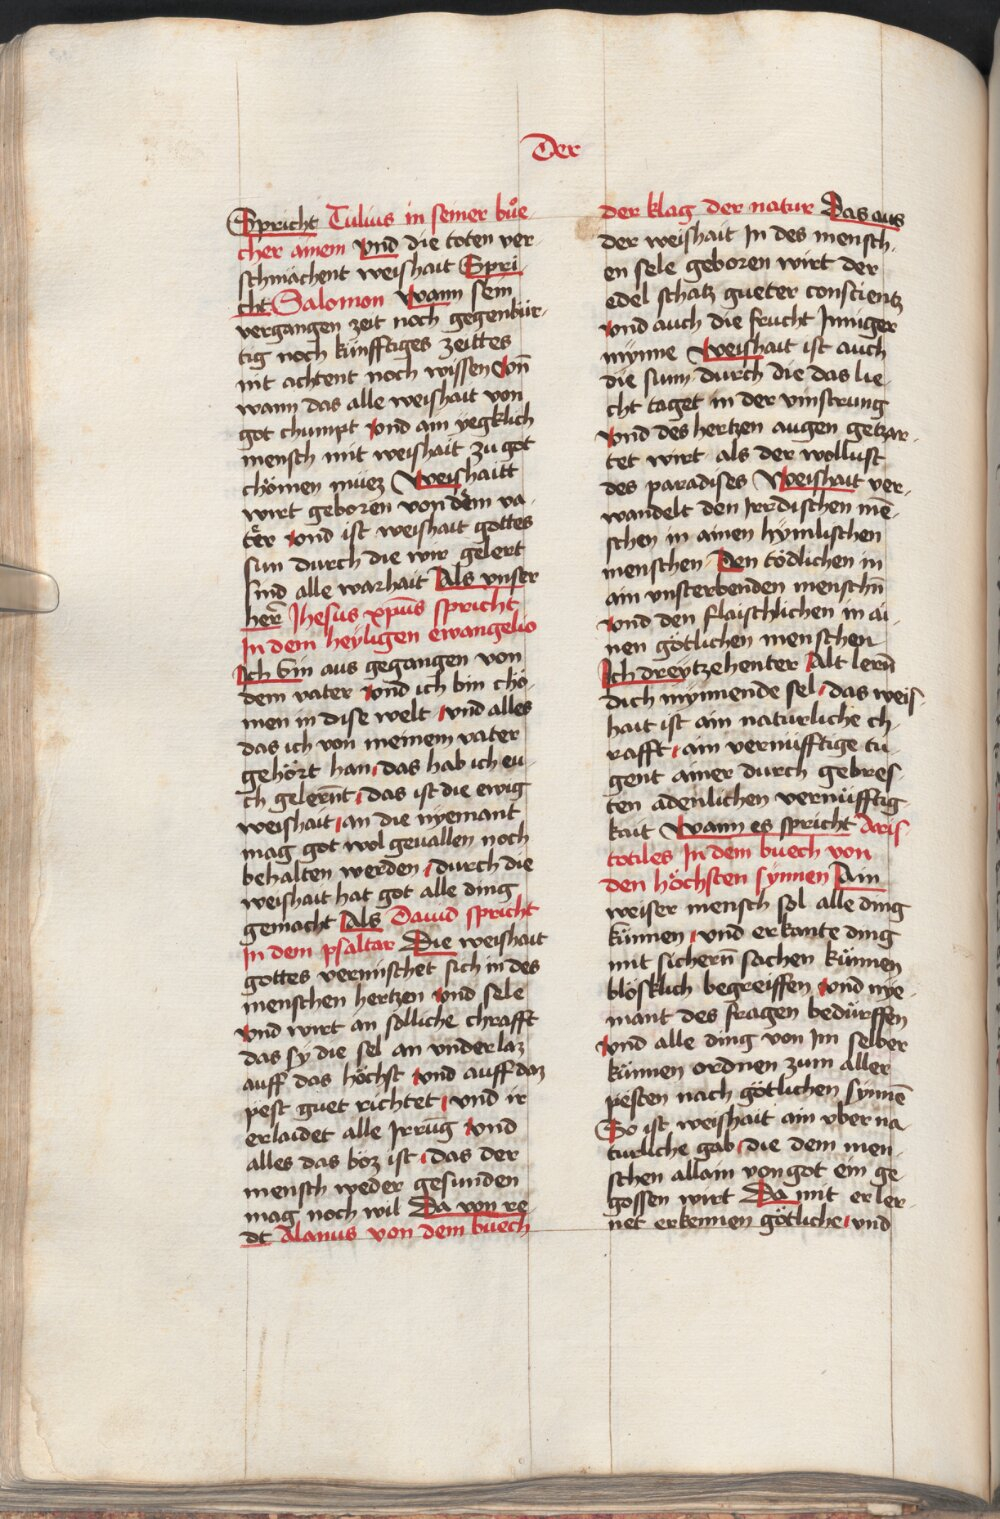 Der
Spricht Tulius in seiner bůe
cher ainem Vnd die toten ver
schmächent weishait Spri
cht Salomon Wann sein
vergangen zeit noch gegenbür
tig noch künfftiges zeittes
nit achtent noch wissen Von̄
wann das alle weishait von
got chumpt vnd ain yegklich
mensch mit weishait zu got
chömen müez Weishaitt
wirt geboren von dem va
ter vnd ist weishait gottes
sun durch die wir gelert
sind alle warhait Als vnser
her̄ Jhesus xp̄us spricht
In dem heyligen ewangelio
Ich bin aus gegangen von
dem vater vnd ich bin chö
men in dise welt vnd alles
das ich von meinem vater
gehört han das hab ich eu
ch gelernt das ist die ewig
weishait an die nyemant
mag got wol geuallen noch
behalten werden durch die
weishait hat got alle ding
gemacht Als Dauid spricht
In dem psaltar Die weishait
gottes vermischet sich in des
menschen hertzen vnd sele
vnd wirt an solliche chrafft
das sy die sel an vnderlaz
auff das höchst vnd auff daz
pest guet richtet vnd ir
erlaidet alle Irrūg vnd
alles das böz ist das der
mensch weder gesunden
mag noch wil Da von re
dt Alanus von dem buech
der klag der natur Das aus
der weishait In des mensch
en sele geboren wirt der
edel schatz gueter conscientz
vnd auch die frucht Inniger
mynne Weishait ist auch
die sunn durch die das lie
cht taget in der vinstrung
vnd des hertzen augen getzar
tet wirt als der wollust
des paradises Weishait ver
wandelt den Irrdischen mē
schen in ainen hymlischen
menschen Den tödlichen in
ain vnsterbenden menschn̄
vnd den flaischlichen in ai
nen götlichen menschen
Ich dreytzehenter Alt lern̄
dich mynnende sel das weis
hait ist ain naturliche ch
rafft ain vernüfftige tu
gent ainer durch gebres
ten adenlichen vernüfftig
kait Wann es spricht Aris
totiles In dem buech von
den höchsten synnen Ain
weiser mensch sol alle ding
künnen vnd erkante ding
mit sichern̄ sachen künnen
blösklich begreiffen vnd nye
mant des fragen bedürffen
vnd alle ding von Im selber
künnen ordnen zum aller
pesten nach götlichen synnē
So ist weishait ain vber na
turliche gab die dem men
schen allain von got ein ge
gossen wirt Da mit er ler
net erkennen götliche vnd